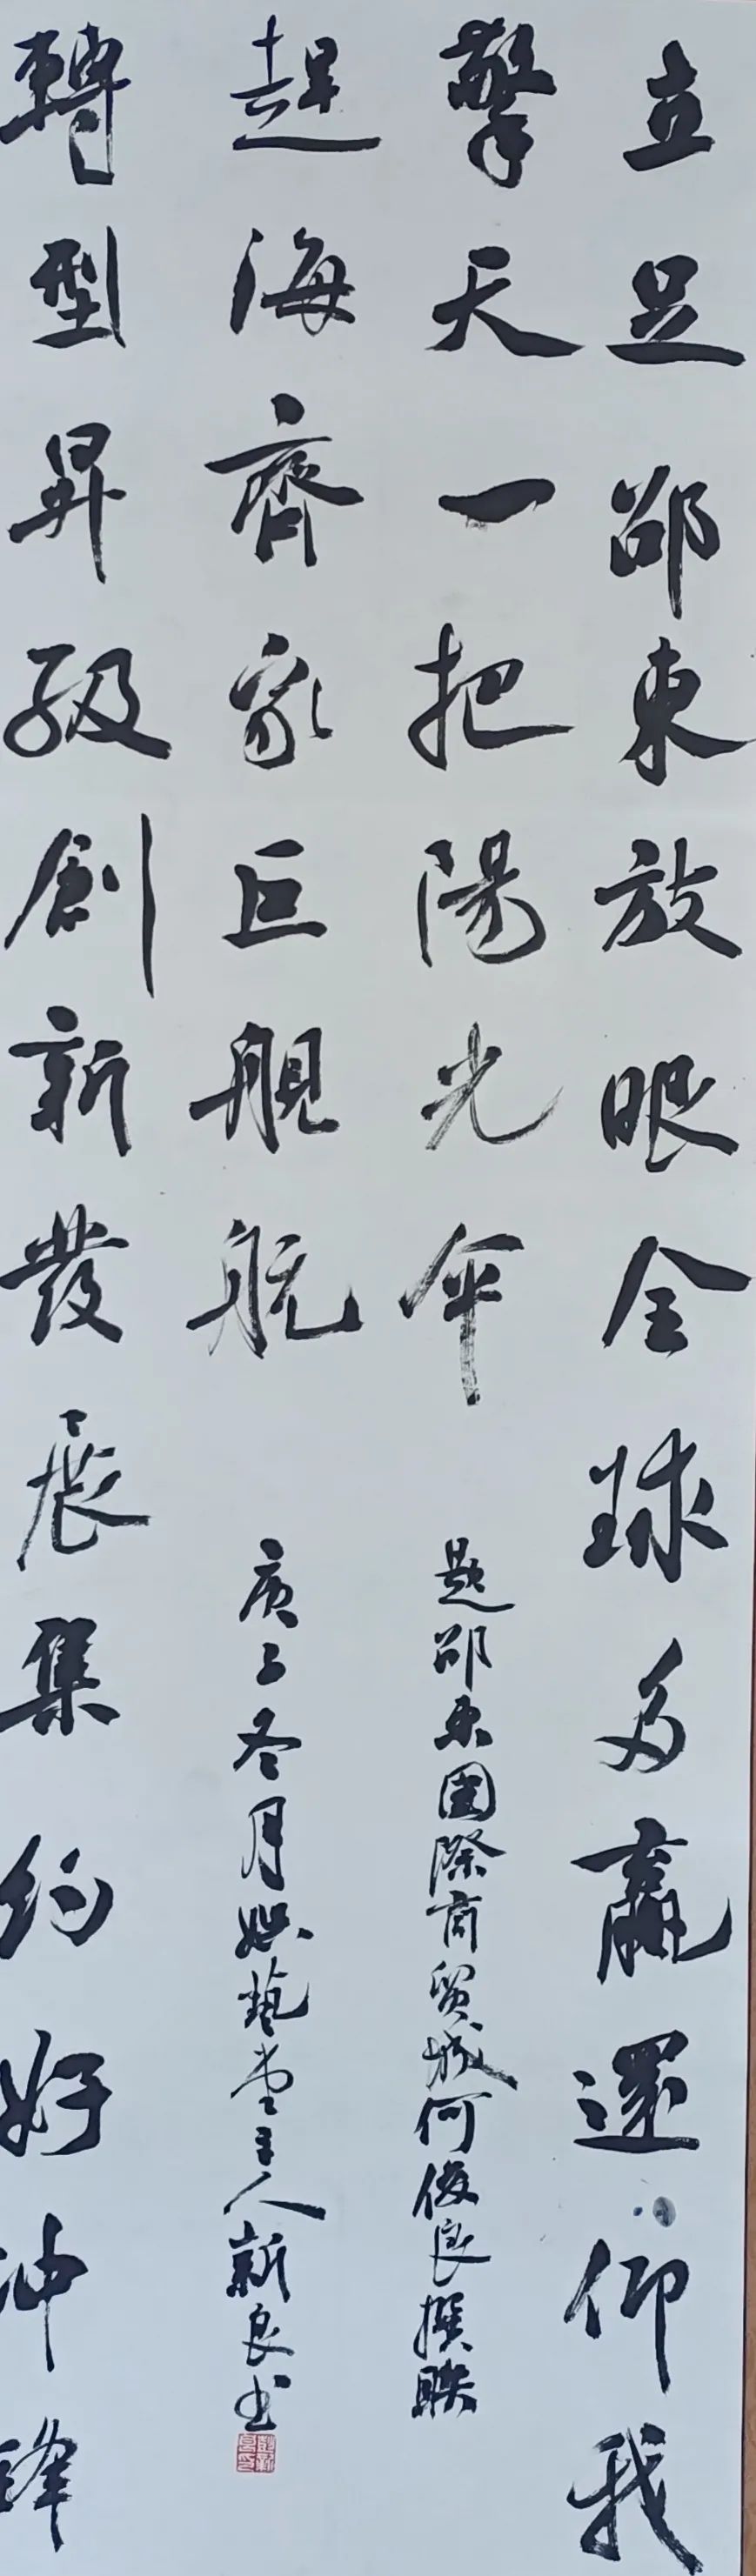 立足邵東放眼全球多贏還仰我
擎天一把陽光傘
題邵東国際商貿城何俊良撰聯
轉型昇級創新發展集約好冲鋒
趕海齊家巨舰航
庚子冬月 藝堂主人新良书